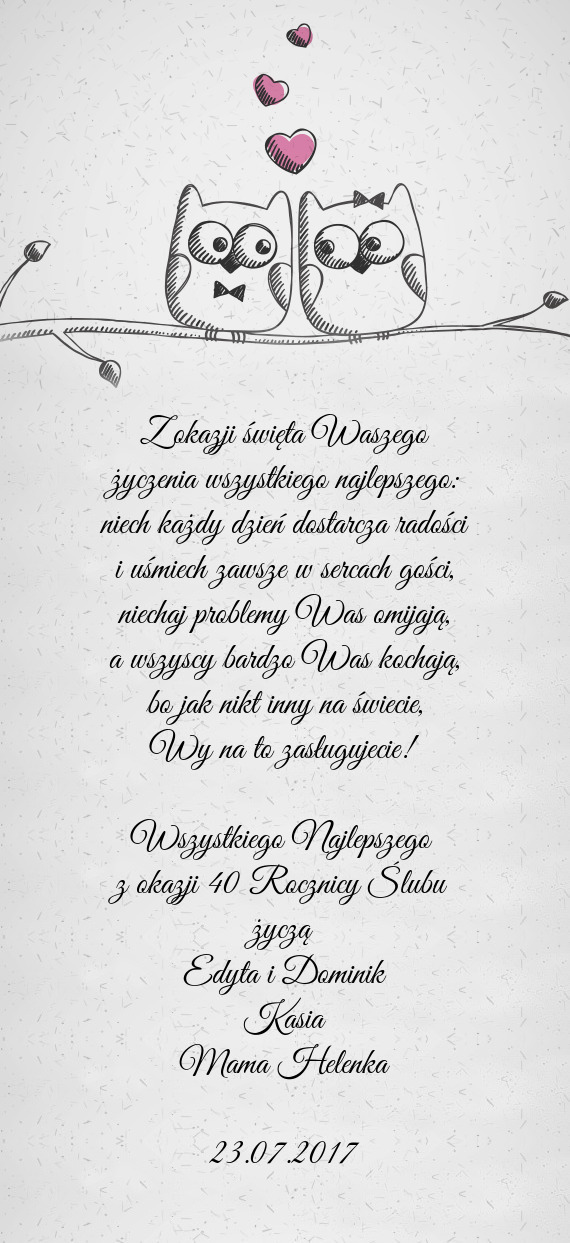 Z okazji święta Waszego
życzenia wszystkiego najlepszego:
niech każdy dzień dostarcza radości
i uśmiech zawsze w sercach gości,
niechaj problemy Was omijają,
a wszyscy bardzo Was kochają,
bo jak nikt inny na świecie,
Wy na to zasługujecie!
Wszystkiego Najlepszego
z okazji 40 Rocznicy Ślubu
życzą
Edyta i Dominik
Kasia
Mama Helenka
23.07.2017